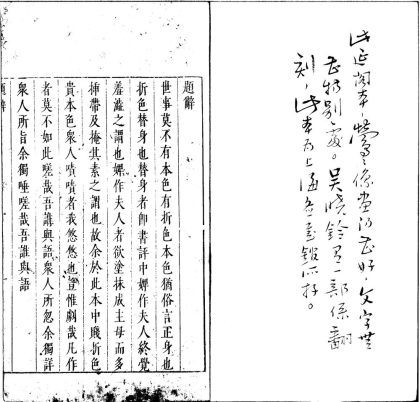 此延閣本，鶯係當
甚特別處。吳曉鈴有一部係翻
刻，此本爲上海所存。
題辭
世事莫不有本色有折色本色猶俗言正身也
折色替身也替身者卽書評中婢作夫人終覺
羞澁之謂也婢作夫人者欲塗抹成主母而多
插帶反掩其素之謂也故余於此本中賤折色
貴本色衆人嘖嘖者我煦煦也豈惟劇哉凡作
者莫不如此嗟哉吾誰與語衆人所忽余獨詳
衆人所旨余獨唾嗟哉吾誰與語
題辭